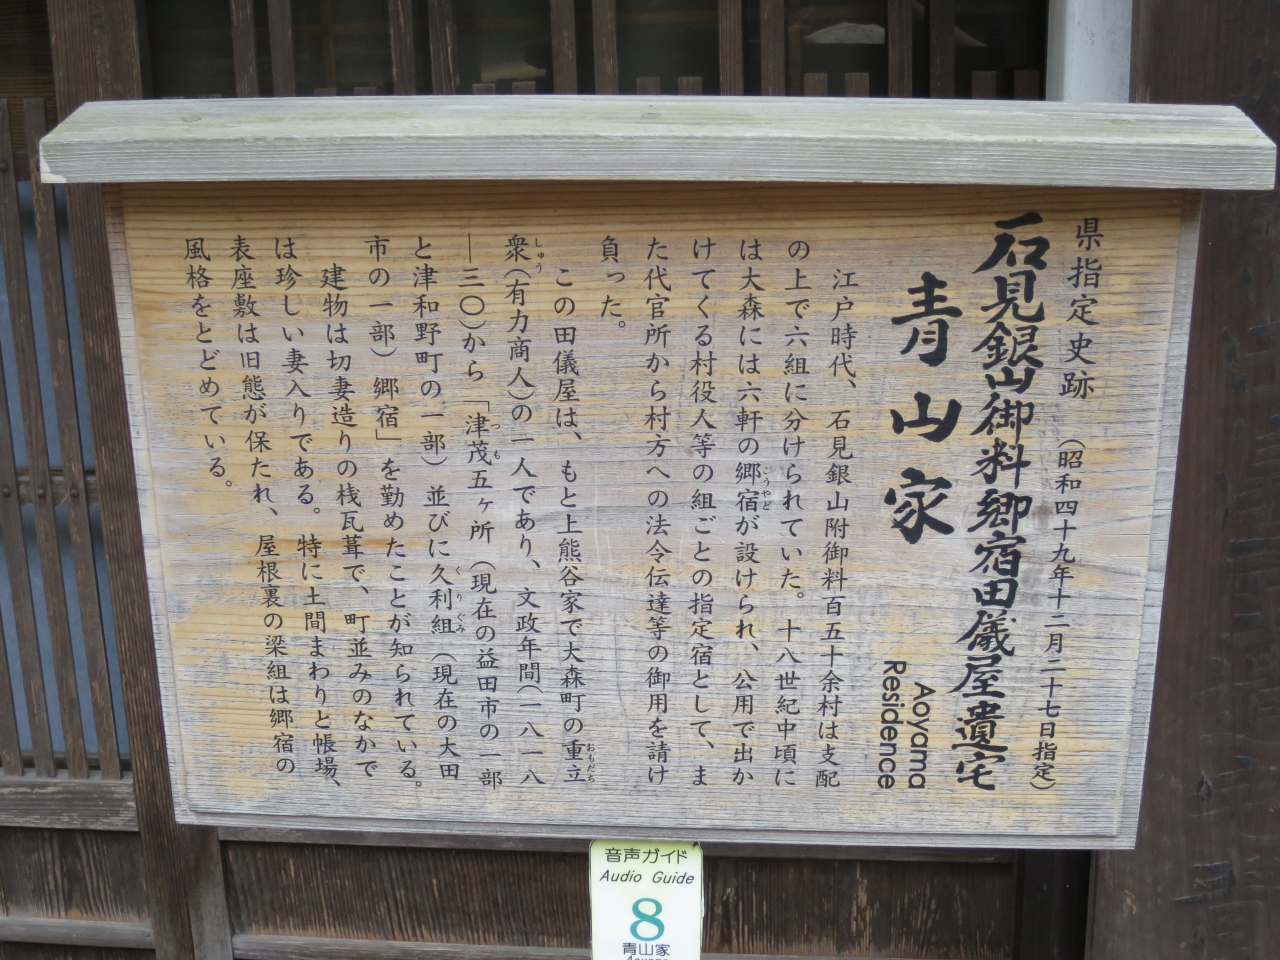 県指定史跡 (昭和四十九年十二月二十七日指定)
石見銀山御料郷宿田儀屋遺宅
青山家
Aoyama
Residence
江戸時代、石見銀山附御料百五十余村は支配
の上で六組に分けられていた。十八世紀中頃に
は大森には六軒の郷宿が設けられ、公用で出か
ごうやど
けてくる村役人等の組ごとの指定宿として、ま
た代官所から村方への法令伝達等の御用を請け
負った。
この田儀屋は、もと上熊谷家で大森町の重立
おもだち
衆(有力商人)の一人であり、文政年間(一八一八
しゅう
―三〇)から「津茂五ヶ所(現在の益田市の一部
つも
と津和野町の一部)並びに久利組(現在の大田
くりぐみ
市の一部)郷宿」を勤めたことが知られている。
建物は切妻造りの桟瓦葺で、町並みのなかで
は珍しい妻入りである。特に土間まわりと帳場、
表座敷は旧態が保たれ、屋根裏の梁組は郷宿の
風格をとどめている。
音声ガイド
Audio Guide
8
青山家